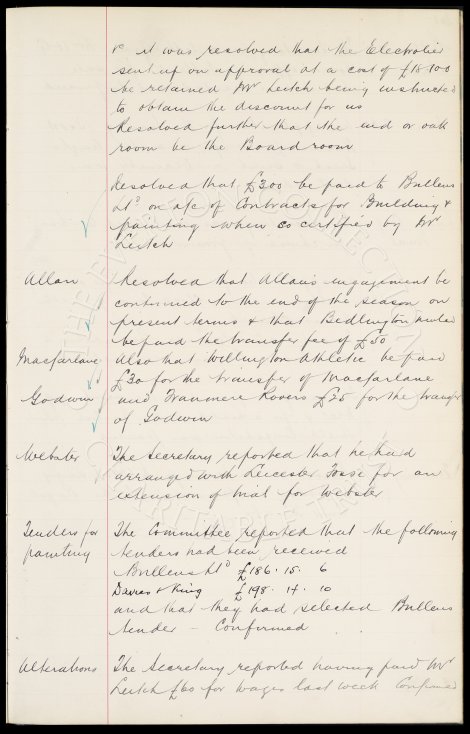 & it was resolved that the Electrolier
sent up on approval at a cost of £18.10.0
be retained Mr Leitch being instructed
to obtain the discount for us
Resolved further that the end or oak
room be the Boardroom
Resolved that £300 be paid to Bullens
Ltd on a/c of Contracts for Building &
painting when so certified by Mr
Leitch
Allan
Resolved that Allan's engagement be
continued to the end of the season on
present terms & that Bedlington United
be paid the transfer fee of £50
Macfarlane
Also that Willington Athletic be paid
£30 for the transfer of Macfarlane
Godwin
and Tranmere Rovers £25 for the transfer
of Godwin
Webster
The Secretary reported that he had
arranged with Leicester Fosse for an
extension of trial for Webster
Tenders for
painting
The Committee reported that the following
tenders had been received
Bullens Ltd £186. 15. 6
Davies & King £198. 14. 10
and that they had selected Bullens
tender – Confirmed
Alterations
The Secretary reported having paid Mr
Leitch £60 for wages last week Confirmed